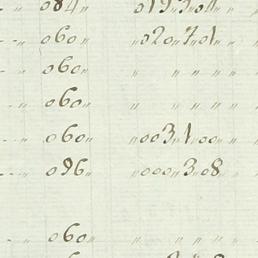 „ 084„ „0193„011„
„ 060„ „020„7„01„
060„ „ „ „ „
„ 060„ „ „ „ „
„ 060„ „003„1„00„
„ 096„ „000„3„08„
„ 060„ „ „ „ „